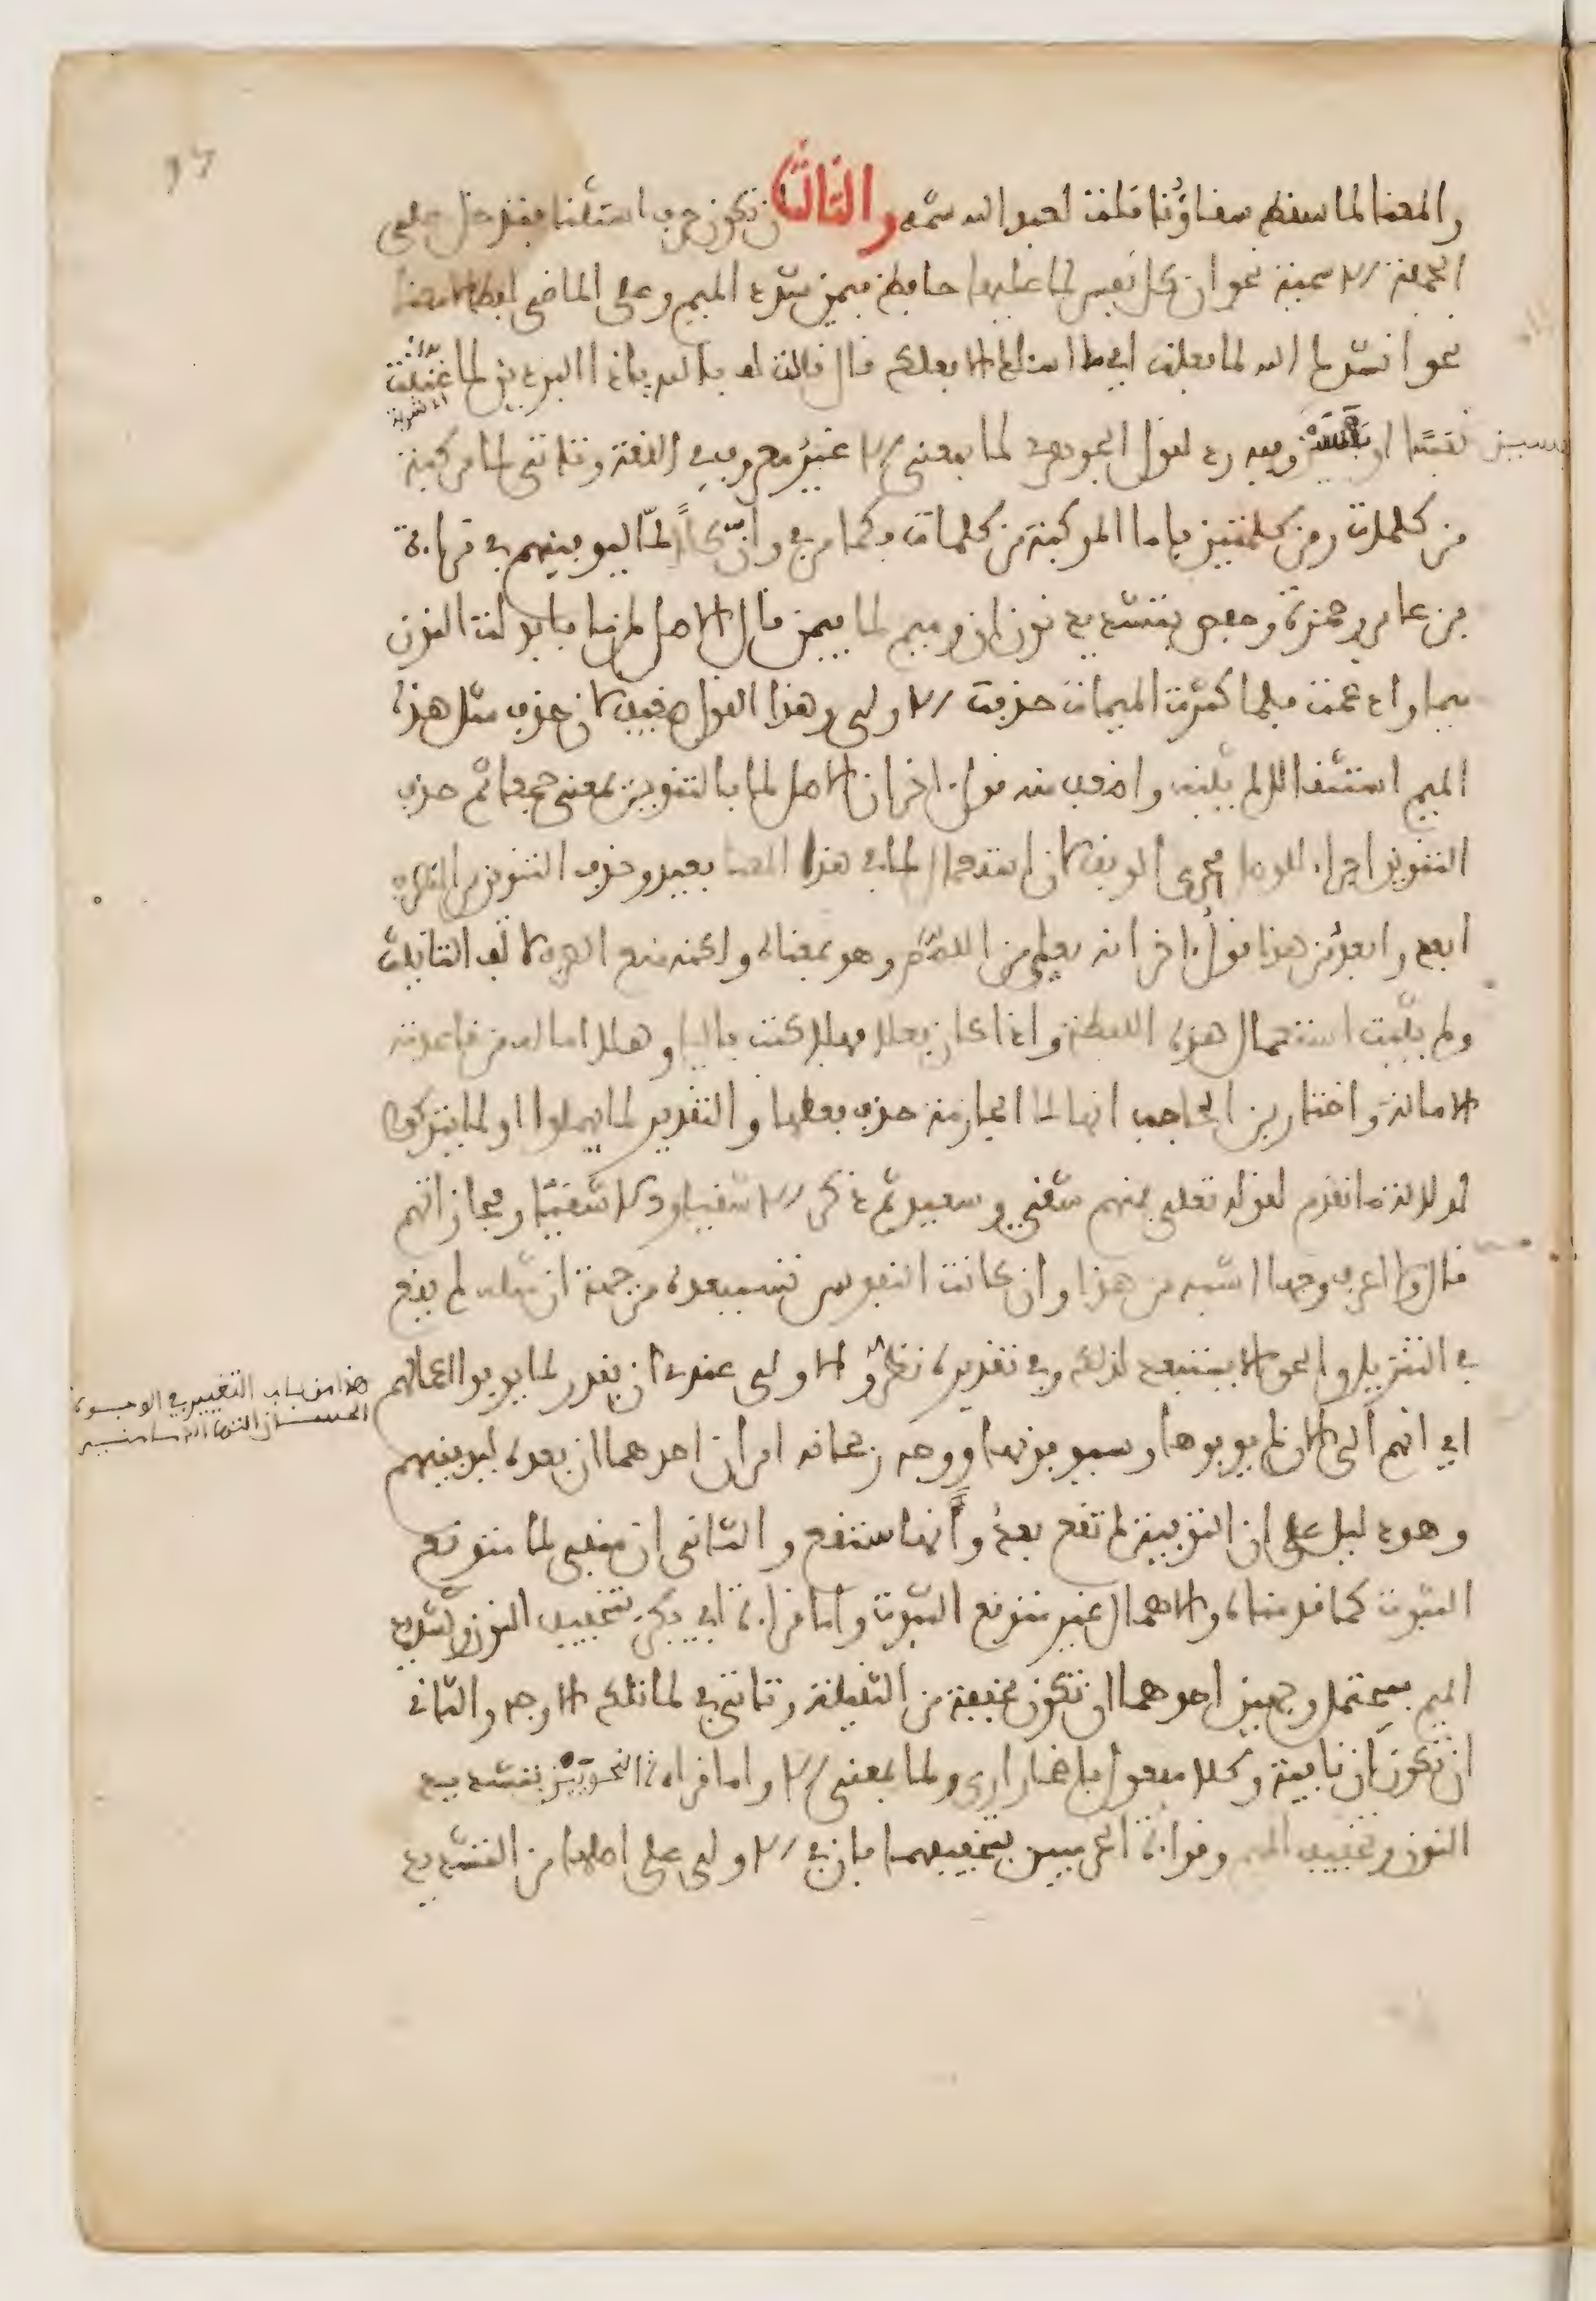 والمعنا لما سقط سقاؤنا قلت لعبد الله شمه والثالث ان تكون حرف استثنا فتدخل على
الجملة الاسمية نحو ان كل نفس لما عليها حافظ فيمن شدد الميم وعلى الماضي لفظا لا معنا
نحو انشدك الله لما فعلت اي ما اسئلك الا فعلك قال قالت له بالله يا ذا البردين لما غنثت
نفسا او نفسين وفيه رد لقول الجوهري لما بمعنى الا غير معروف في اللغة وتاتي لما مركبة
من كلمات ومن كلمتين فاما المركبة من كلمات فكما في وان كلا لما ليوفينهم في قراءة
بن عامر وحمزة وحفص بتشديد نون ان وميم لما فيمن قال الاصل لمن ما فابدلت النون
ميما وادغمت فلما كثرت الميمات حذفت الاولى وهذا القول ضعيف لان حذف مثل هذه
الميم استثقالا لم يثبت واضعف منه قول اخر ان الاصل لما بالتنوين بمعنى جمعا ثم حذف
التنوين اجراء للوصل مجرى الوقف لان استعمال لما في هذا المعنا بعيد وحذف التنوين من المنصرف
ابعد وابعد من هذا قول اخر انه فعلى من اللمم وهو بمعناه ولكنه منع الصرف لالف التانيث
ولم يثبت استعمال هذه اللفظة واذا كان فعلا فهلا كتب باليا وهلا اماله من قاعدته
الامالة واختار بن الحاجب انها لما الجازمة حذف فعلها والتقدير لما يهملوا او لما يتركوا
لدلالة ما تقدم لقوله تعلى فمنهم شقي وسعيد ثم ذكر الاشقيا والسعدا ومجازاتهم
قال ولا اعرف وجها اشبه من هذا وان كانت النفوس تستبعده من جهة ان مثله لم يقع
في التنزيل والحق الا يستبعد لذلك وفي تقديره نظر والاولى عندي ان يقدر لما يوفوا اعمالهم
اي انهم الى الان لم يوفوها وسيوفونها ووجه رجحانه امران احدهما ان بعده ليوفينهم
وهو دليل على ان التوفية لم تقع بعد وأنها ستقع والثاني ان منفي لما متوقع
الثبوت كما قدمناه والاهمال غير متوقع الثبوت واما قراءة ابي بكر بتخفيف النون وتشديد
الميم فيحتمل وجهين احدهما ان تكون مخففة من الثقيلة وتاتي في لما تلك الاوجه والثاني
ان تكون ان نافية وكلا مفعول باضمار ارى ولما بمعنى الا واما قراءة النحويين بتشديد
النون وتخفيف الميم وقراءة الحرميين بتخفيفهما فان في الاولى على اصلها من التشديد
هذا من باب التغيير في الاوجبوة